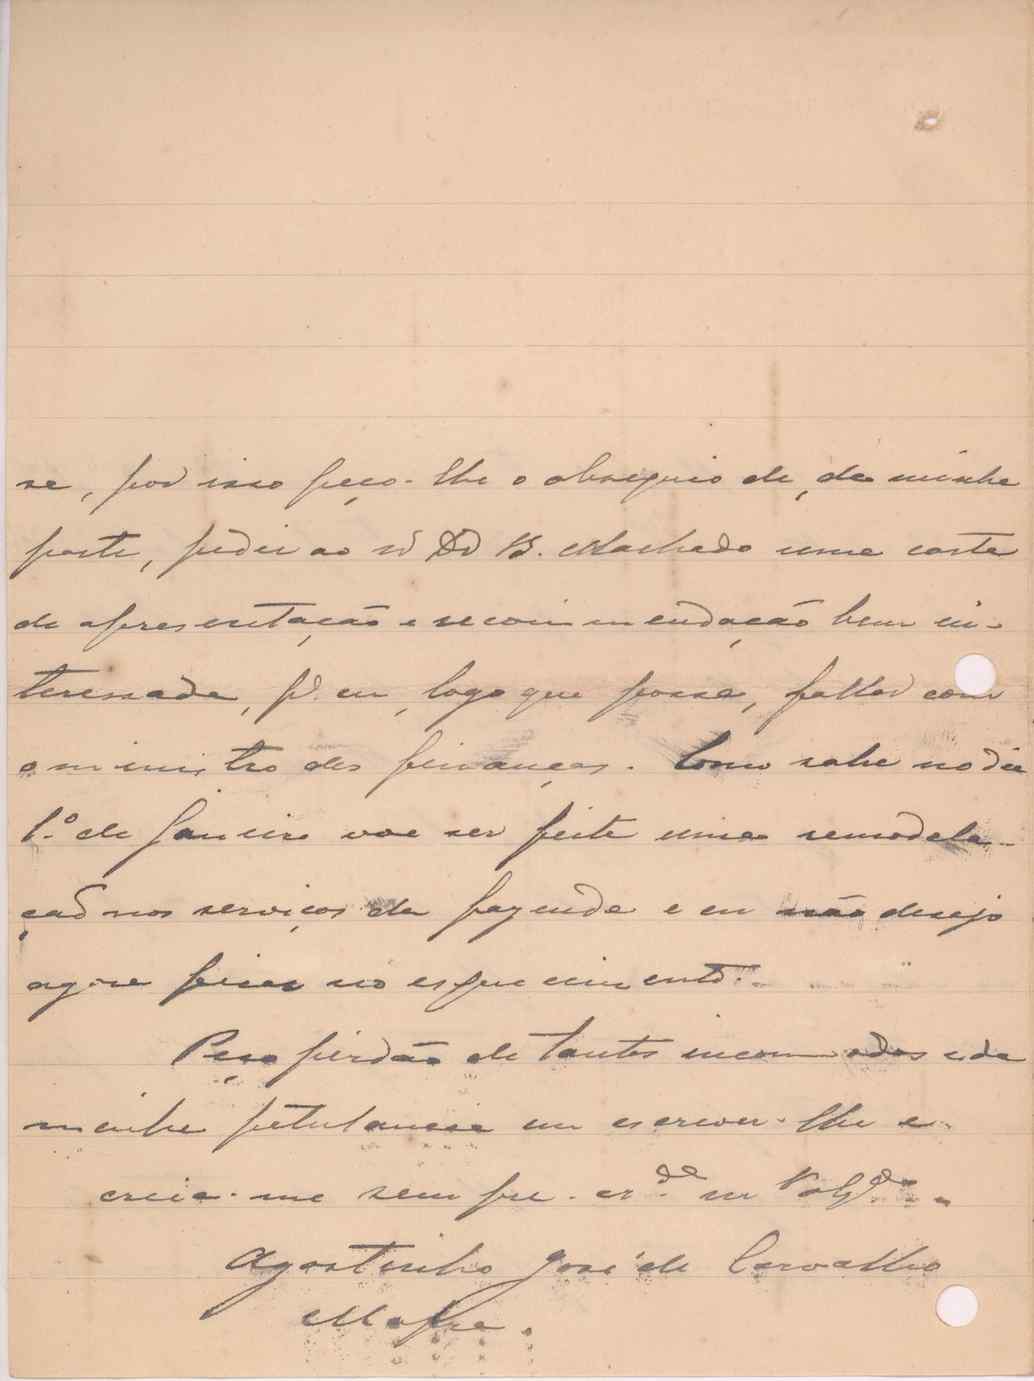 se, por isso peço-lhe o obsequio de, da minha
parte, pedir ao Sr Dr B. Machado uma carta
de apresentação e recommendação bem in-
teressada, pª eu, logo que possa, fallar com
o ministro das finanças. Como sabe no dia
1.º de Janeiro vae ser feita uma remodela-
ção nos serviços da fazenda e eu não desejo
agora ficar no esquecimento.
Peço perdão de tantos incommodos e da
minha petulancia em escrever-lhe e
creia-me sempre cr.do m
Agostinho José de Carvalho
Mafra.